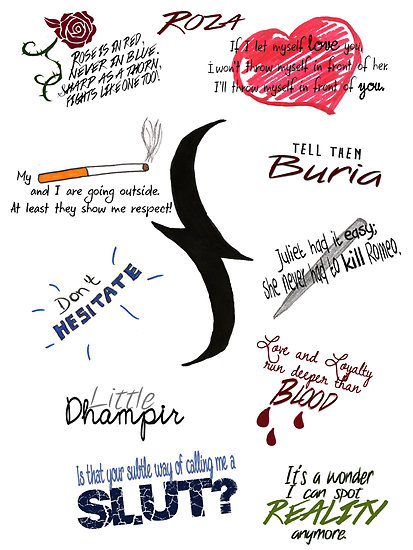 ROZA
ROSE IS IN RED,
NEVER IN BLUE.
SHARP AS A THORN,
FIGHTS LIKE ONE TOO!
If I let myself love you,
I won't throw myself in front of her.
I'll throw myself in front of you.
My
and I are going outside.
At least they show me respect!
TELL THEM
Buria
Juliet had it easy;
she never had to kill Romeo.
Don't
HESITATE
Love and Loyalty
run deeper than
BLOOD
Little
Dhampir
Is that your subtle way of calling me a
SLUT?
It's a wonder
I can spot
REALITY
anymore.